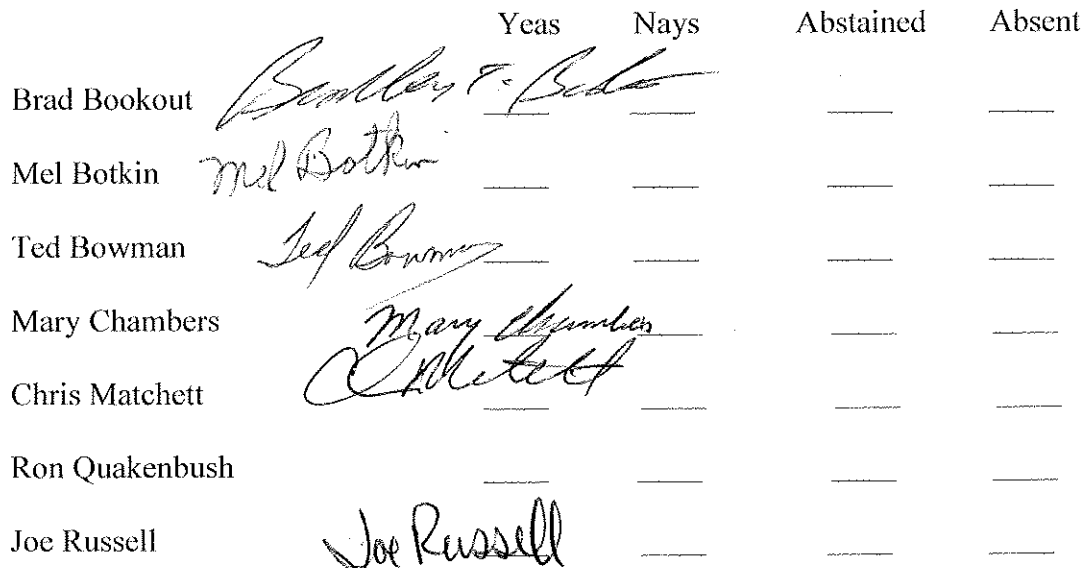 Yeas Nays Abstained Absent
Brad Bookout
Mel Botkin Mel Botkin
Ted Bowman Ted Bowman
Mary Chambers Mary Chambers
Chris Matchett C Matchett
Ron Quakenbush
Joe Russell Joe Russell